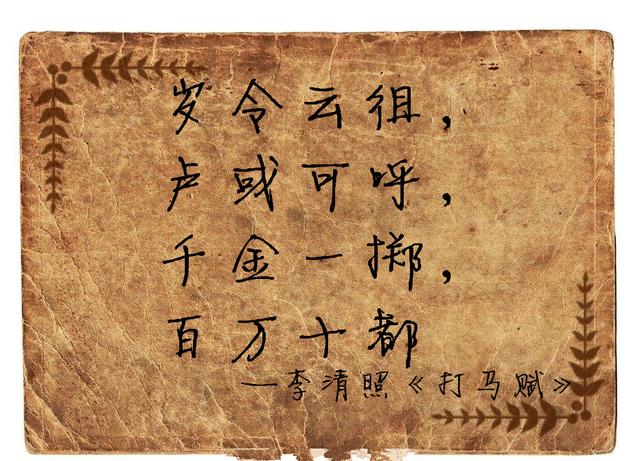 岁令云徂，
卢或可呼，
千金一掷，
百万十都
—李清照《打马赋》